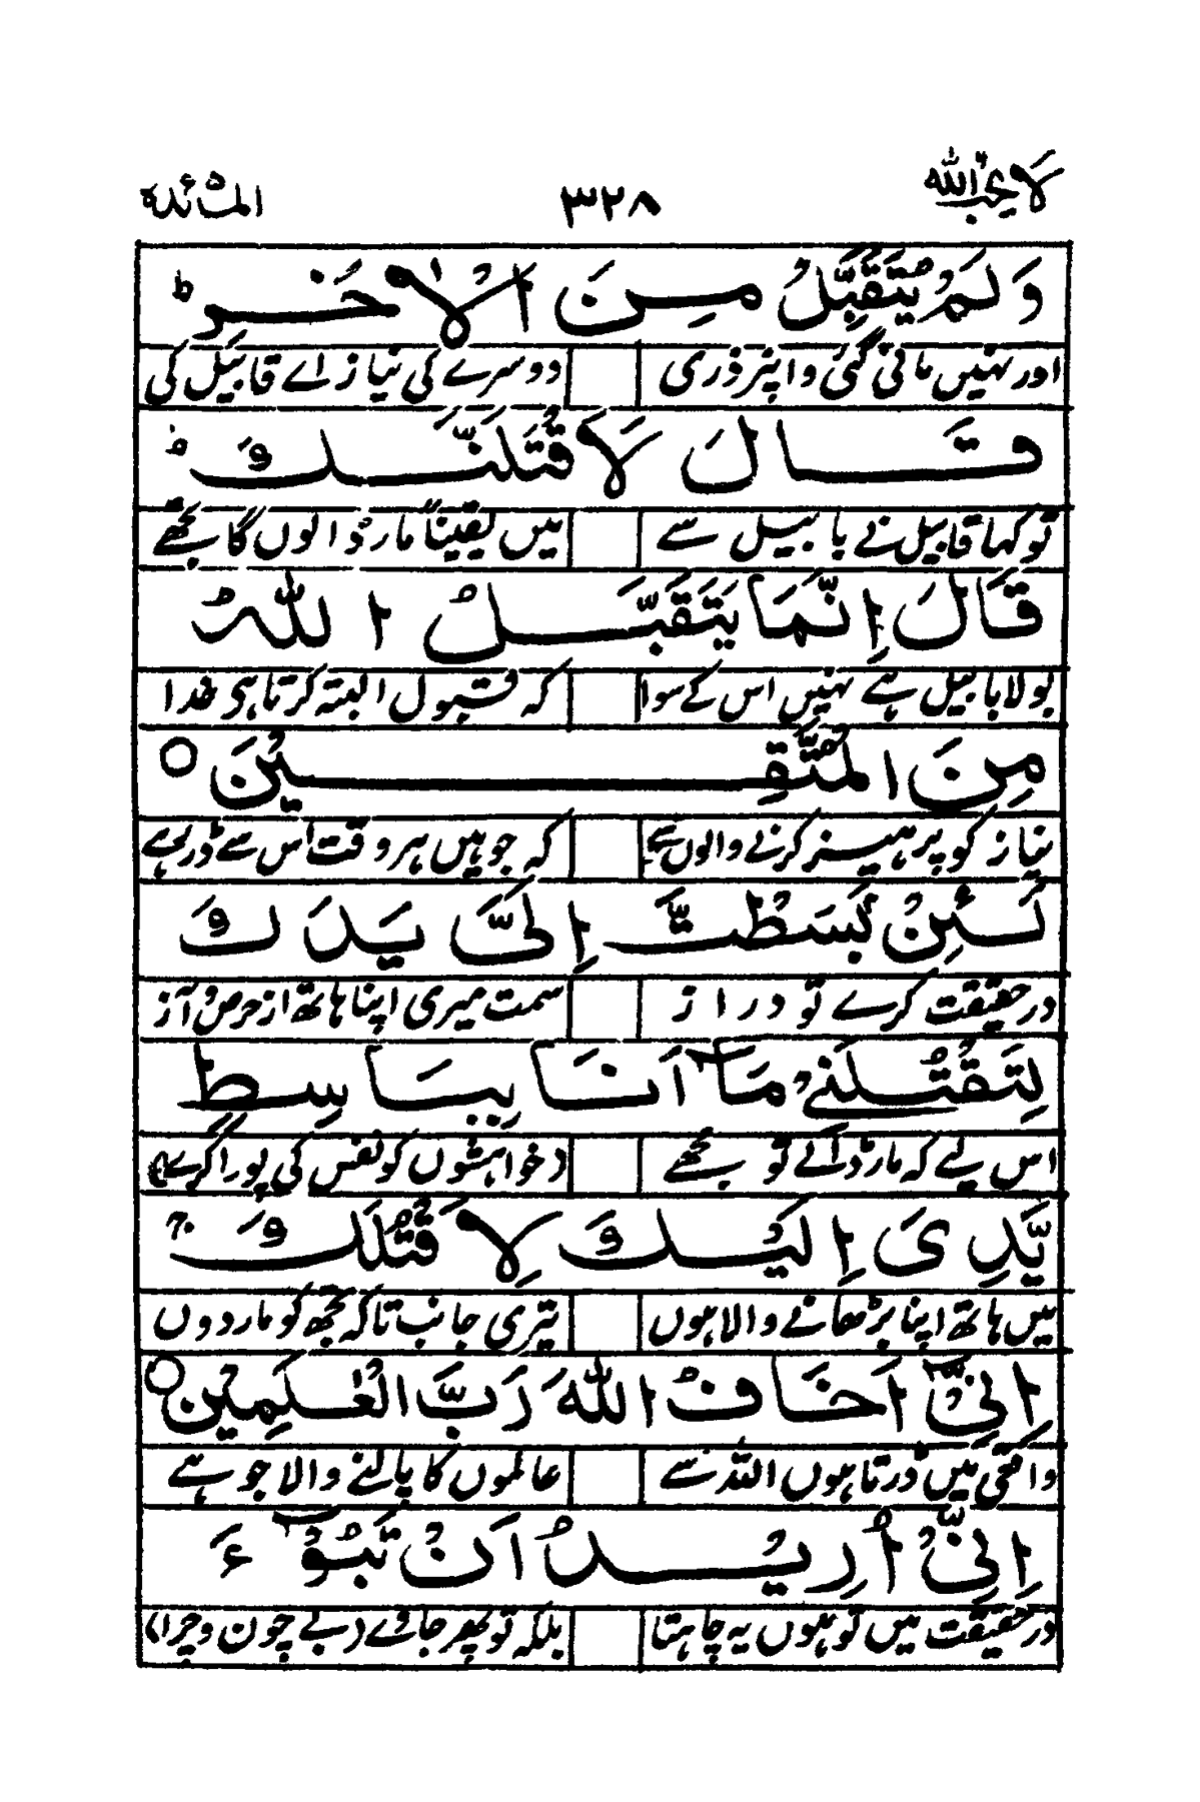 لا يحب الله ۳۲۸ المآئدة
وَلَمْ يُتَقَبَّلْ مِنَ الْاٰخَرِ ؕ
اور نہیں مانی گئی واپنرذری دوسرے کی نیاز اے قابیل کی
قَالَ لَاَقْتُلَنَّكَ ؕ
تو کہا قابیل نے ہابیل سے میں یقیناً مار ڈالوں گا تجھے
قَالَ اِنَّمَا يَتَقَبَّلُ اللّٰهُ
بولا ہابیل ہے نہیں اس کے سوا کہ قبول البتہ کرتا ہی خدا
مِنَ الْمُتَّقِيْنَ ○
نیاز کو پرہیز کرنے والوں سے کہ جو ہیں ہر وقت اس سے ڈر رہے
لَئِنْۢ بَسَطْتَّ اِلَیَّ يَدَكَ
در حقیقت کرے تو دراز سمت میری اپنا ہاتھ از حرص و آز
لِتَقْتُلَنِیْ مَاۤ اَنَا بِبَاسِطٍ
اس لیے کہ مار ڈالے تو مجھے (خواہشوں کو نفس کی پورا کرے)
يَّدِیَ اِلَيْكَ لِاَقْتُلَكَ ۚ
میں ہاتھ اپنا بڑھانے والا ہوں تیری جانب تاکہ تجھ کو مار دوں
اِنِّیْۤ اَخَافُ اللّٰهَ رَبَّ الْعٰلَمِيْنَ ○
واقعی میں ڈرتا ہوں اللہ سے عالموں کا پالنے والا جو ہے
اِنِّیْۤ اُرِيْدُ اَنْ تَبُوْٓءَ
در حقیقت میں تو ہوں یہ چاہتا بلکہ تو پھر جاوے (بے چون و چرا)